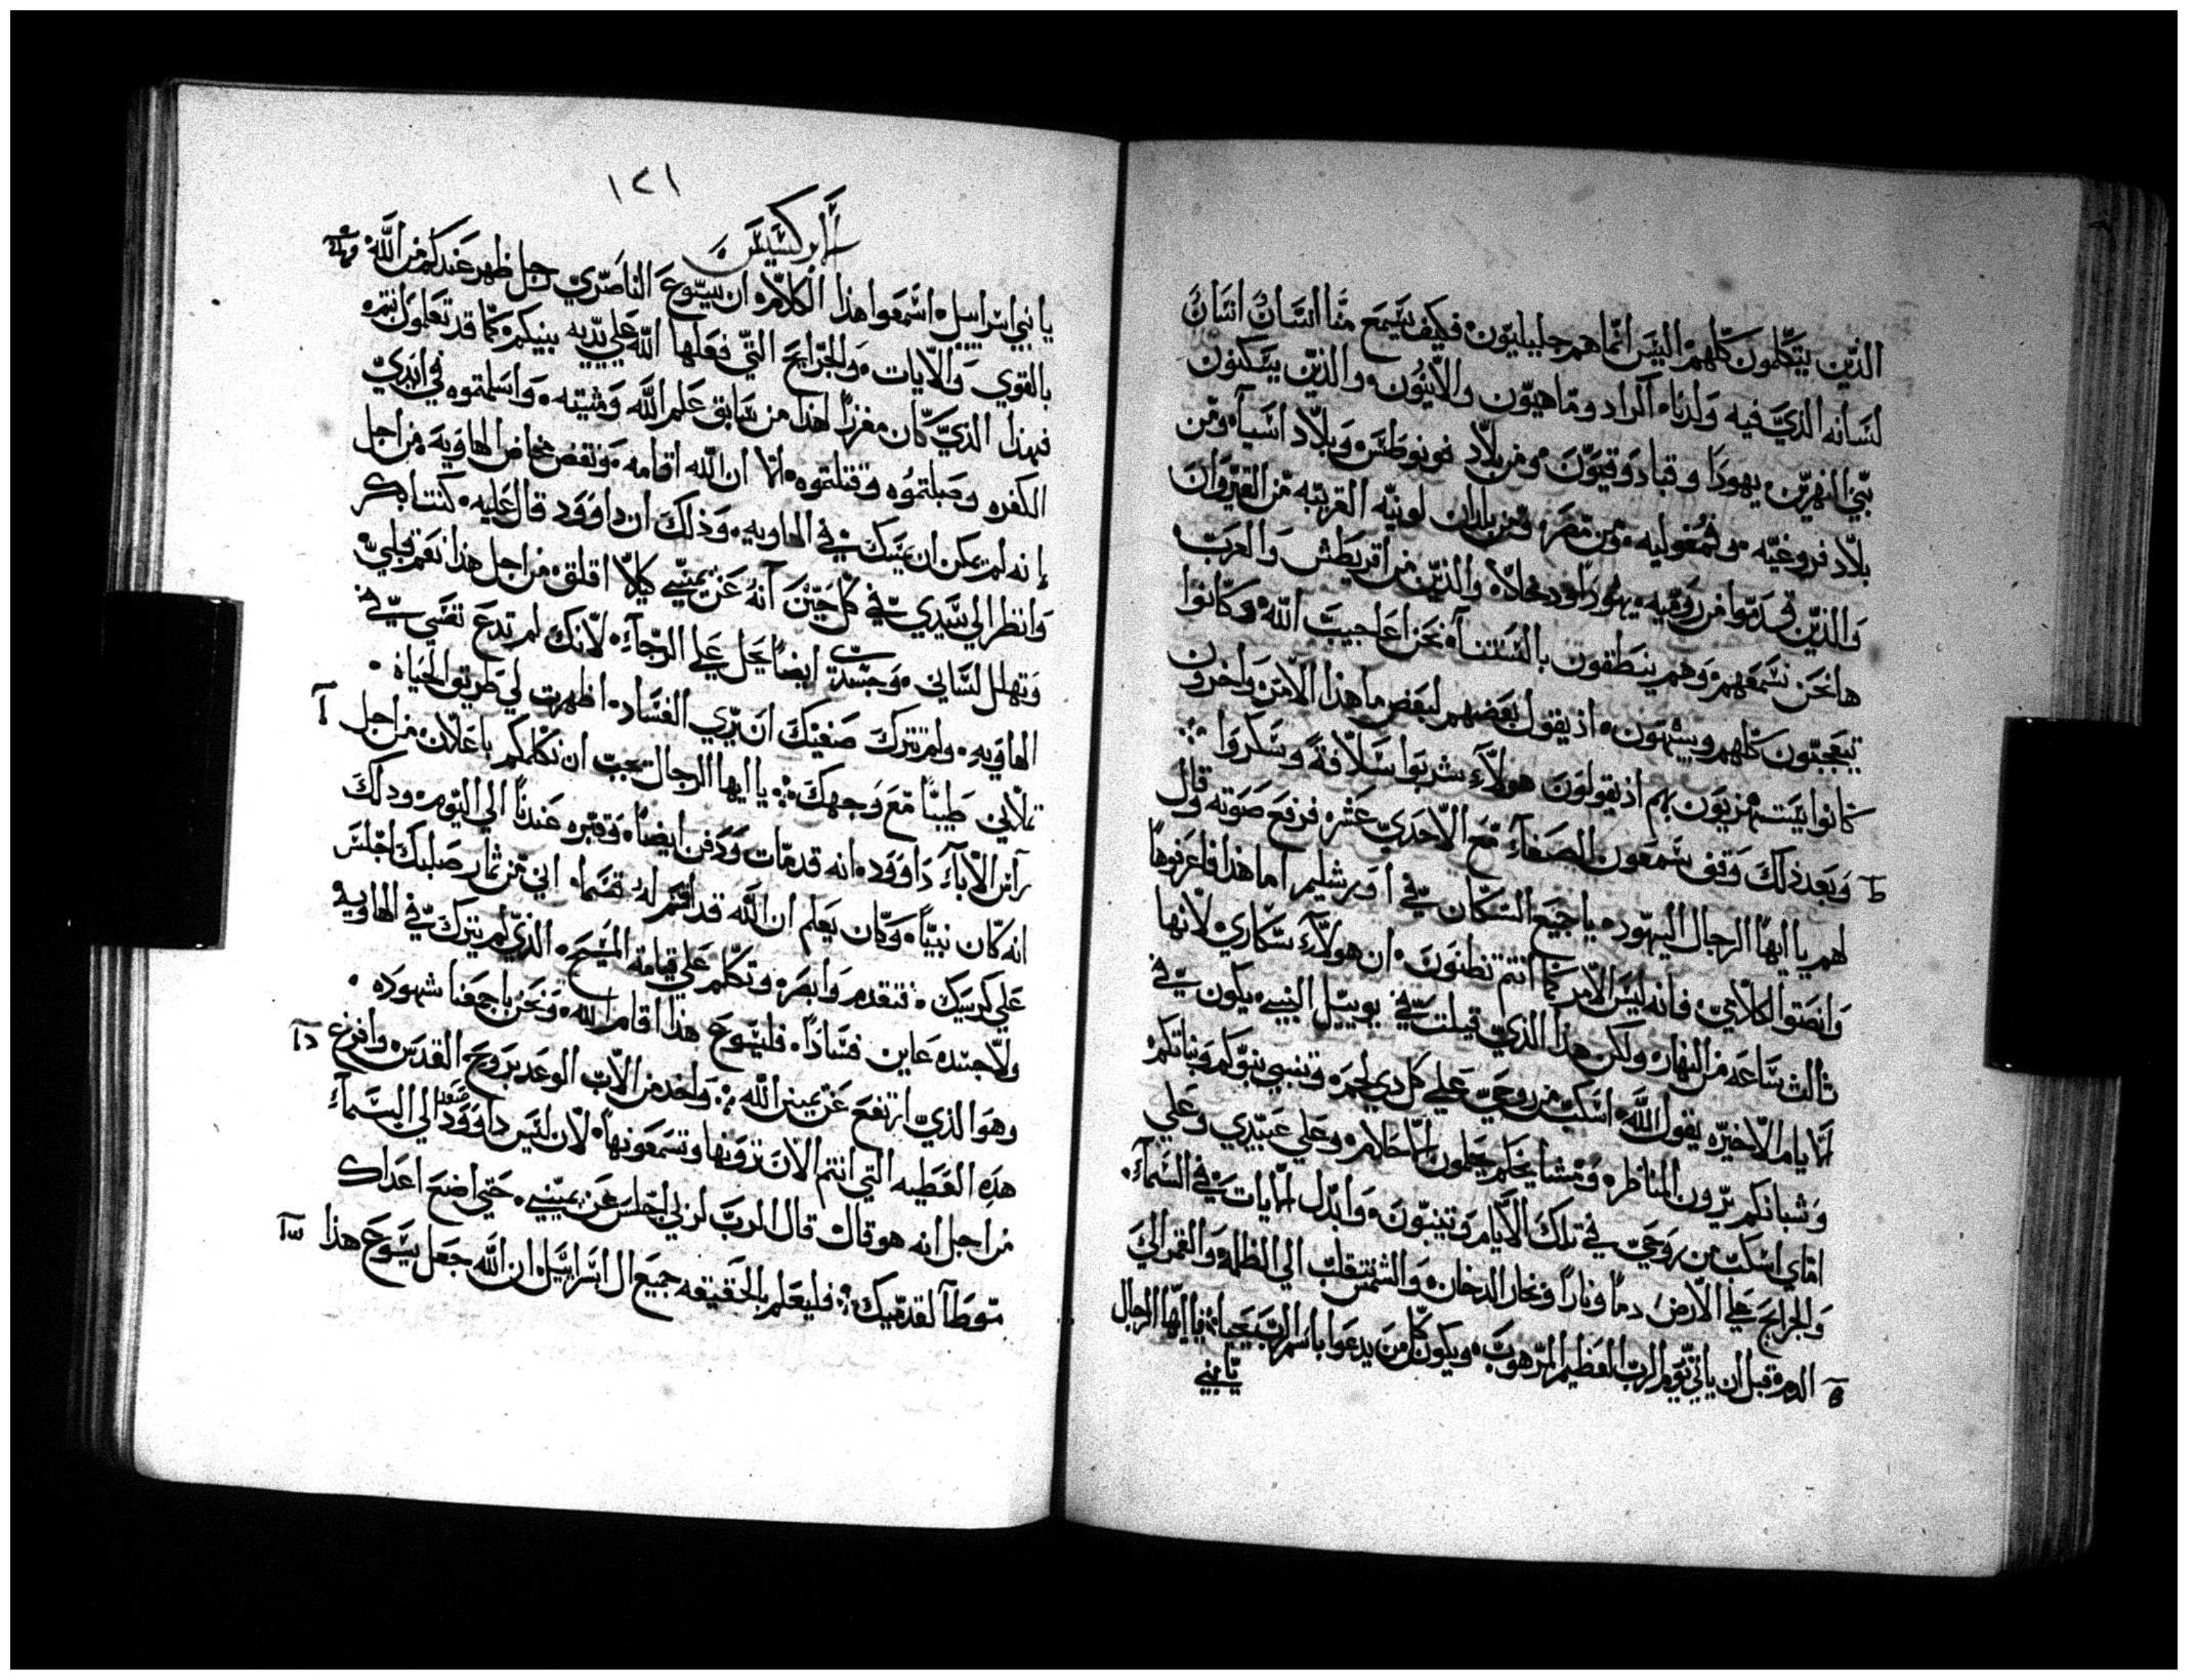 الذين يتكلمون كلهم اليس انما هم جليليون فكيف يسمع منا انسان انسان
لسانه الذي فيه ولدنا اكراد وماهيون والانيون والذين يسكنون
بين النهرين يهودا وقبادوقيون ومن بلاد نونوطس وبلاد اسيا ومن
بلاد فروغيه وفمغوليه ومن مصر ومن بلدان لونيه القريبه من القيروان
والذين قدموا من روميه يهودا ودخلاء والذين من اقريطش والعرب
ها نحن نسمعهم وهم ينطقون بالسنتنا نحن اعاجيب الله وكانوا
يتعجبون كلهم ويبهتون اذ يقول بعضهم لبعض ما هذا الامر واخرون
كانوا يستهزيون بهم اذ يقولون هولاء شربوا سلافة وسكروا
ط وبعد ذلك وقف شمعون الصفاء مع الاحدي عشر فرفع صوته وقال
لهم يا ايها الرجال اليهود يا جميع السكان في اورشليم اما هذا فاعرفوها
وانصتوا لكلامي فانه ليس الامر كما انتم تظنون ان هولاء سكاري لانها
ثالث ساعه من النهار ولكن هذا الذي قيلت في يوييل النبي يكون في
الايام الاخيره يقول الله اسكب من روحي علي كل ذي لحم وتنبي بنوكم وبناتكم
وشبانكم يرون المناظر ومشايخكم يحلمون الاحلام وعلي عبيدي وعلي
اماي اسكب من روحي في تلك الايام ويتنبون وابدل الايات في السماء
والجرايح علي الارض دما ونارا وبخار الدخان والشمس تنقلب الي الظلمه والقمر الي
الدم قبل ان ياتي يوم الرب العظيم المرهوب ويكون كل من يدعوا باسم الرب يحيا فيا ايها الرجال
يا بني
١٢١
ابركسيس
يا بني اسراييل اسمعوا هذا الكلام ان يسوع الناصري رجل ظهر عندكم من الله
بالقوي والايات والجرايح التي فعلها الله علي يديه بينكم كما قد تعلمون انتم
فهذا الذي كان مفرزا لهذا من سابق علم الله ومشيته واسلمتموه في ايدي
الكفره وصلبتموه وقتلتموه اما ان الله اقامه ونقض مخاض الهاويه من اجل
انه لم يمكن ان يمسك في الهاويه وذلك ان داوود قال عليه كنت ابكر
وانظر الي سيدي في كل حين انه عن يميني كيلا اقلق من اجل هذا نعم قلبي
وتهلل لساني وجسدي ايضا يحل علي الرجاء لانك لم تدع نفسي في
الهاويه ولم تترك صفيك ان يري الفساد اظهرت لي طريق الحياه
تملاني طيبا مع وجهك يا ايها الرجال يجب ان نكلمكم باعلان من اجل
راس الاباء داوود انه قد مات ودفن ايضا وقبره عندنا الي اليوم وذلك
انه كان نبيا وكان يعلم ان الله قد اقسم له قسما اني من ثمار صلبك اجلس
علي كرسيك فتقدم وابصر وتكلم علي قيامة المسيح الذي لم يترك في الهاويه
ولا جسده عاين فسادا فليسوع هذا اقام الله ونحن باجمعنا شهوده
وهو الذي ارتفع عن يمين الله واخذ من الاب الوعد بروح القدس وافرغ
هذه العطيه التي انتم الان ترونها وتسمعونها لان ليس داوود صعد الي السماء
من اجل انه هو قال قال الرب لربي اجلس عن يميني حتي اضع اعداك
موطا لقدميك فليعلم بالحقيقه جميع ال اسراييل ان الله جعل يسوع هذا